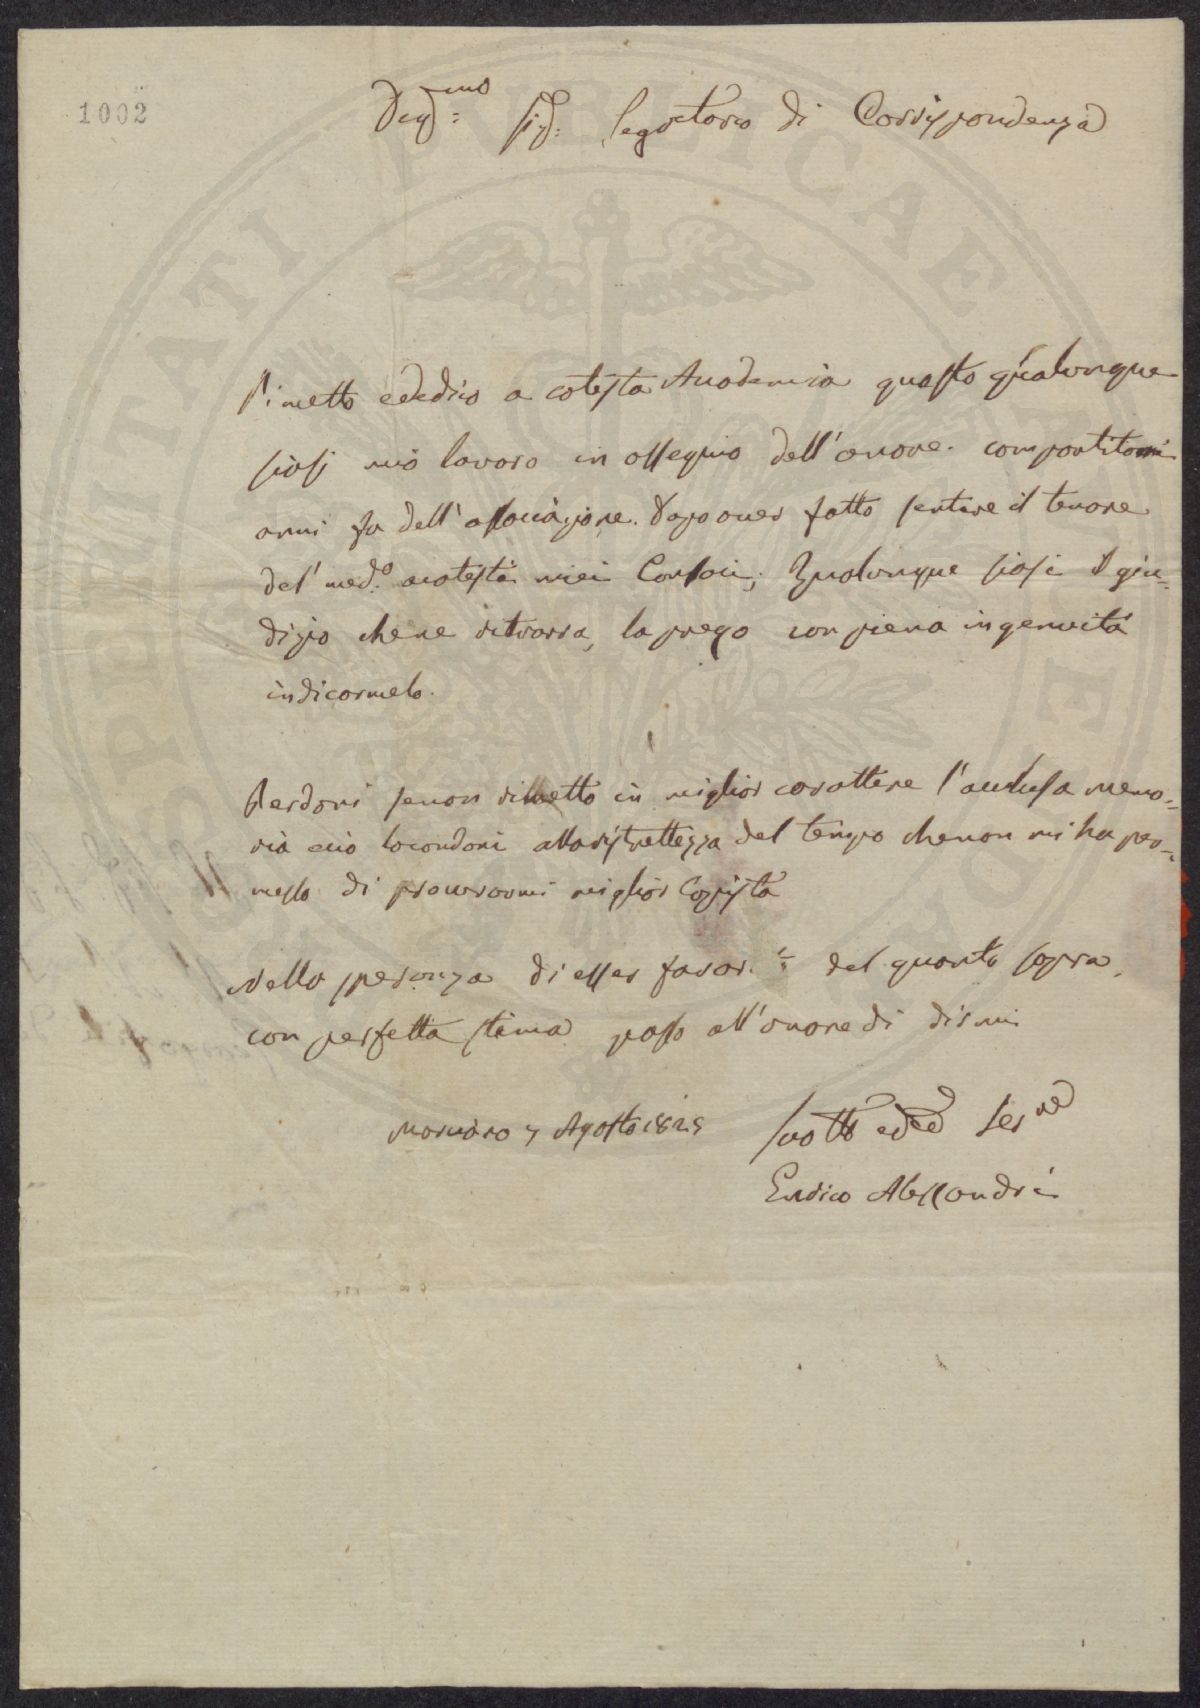 1002
Deg:mo Sig: Segretario di Corrispondenza
Rimetto e dedico a cotesta Accademia questo qualunque
siasi mio lavoro in ossequio dell'onore compartitomi
anni fa dell'associazione. Dopo aver fatto sentire il tenore
del med:o a cotesti miei Consoci; Qualunque siasi il giu=
dizio che ne ritrarrà, la prego con piena ingenuità
indicarmelo.
Perdoni se non rimetto in miglior carattere l'acclusa memo=
ria e ciò locondoni alla ristrettezza del tempo che non mi ha per=
messo di procurarmi miglior Copista
Nella speranza di esser favor: del quanto sopra,
con perfetta stima passo all'onore di dirmi
Morciano 7 Agosto 1825
Suo ed Ser re
Enrico Alessandri